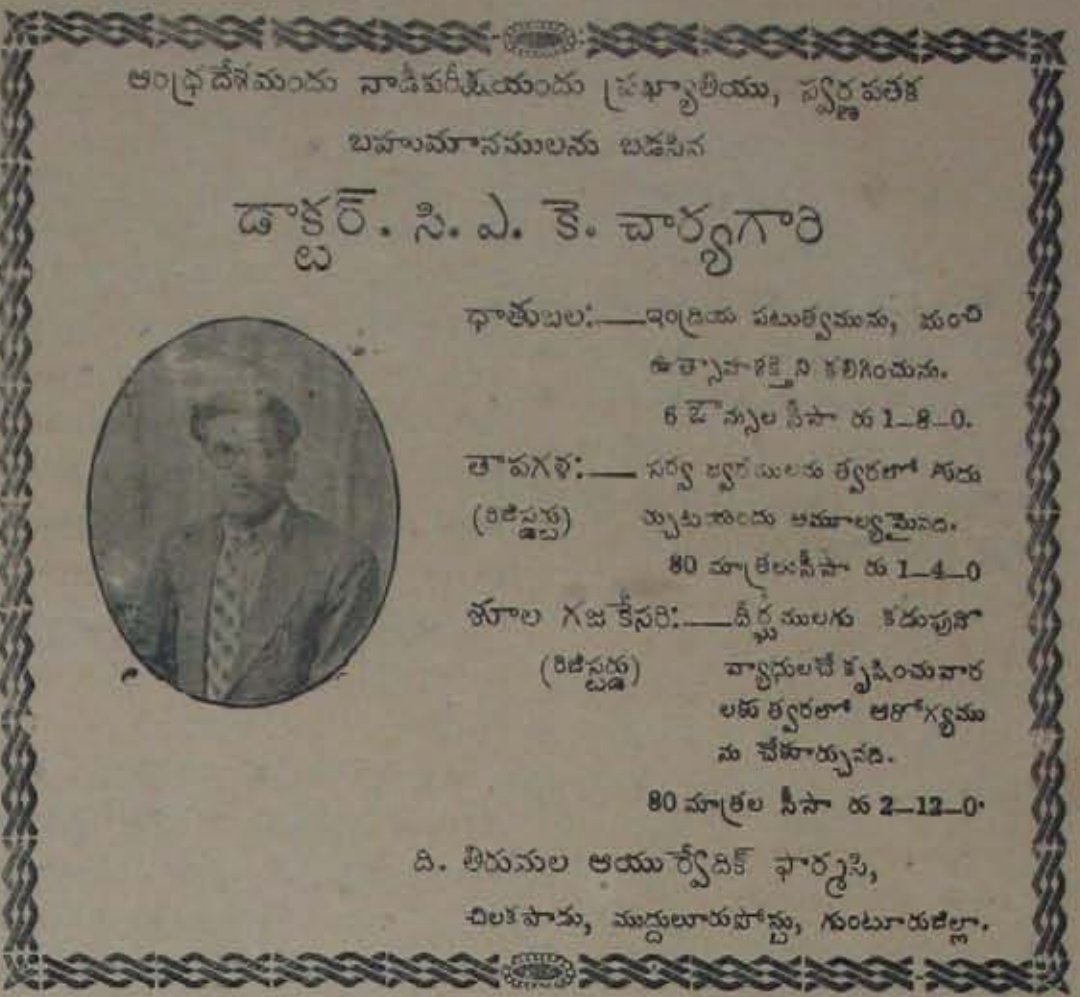 ఆంధ్రదేశమందు నాడీపరీక్షయందు ప్రఖ్యాతియు, స్వర్ణపతక
బహుమానములను బడసిన
డాక్టర్. సి. ఎ. కె. చార్యగారి
ధాతుబల:—ఇంద్రియ పటుత్వమును, మంచి
ఉత్సాహశక్తిని కలిగించును.
6 ఔన్సుల సీసా రు 1—8—0.
తాపగళ:— సర్వ జ్వరములను త్వరలో కుదు
(రిజిష్టర్డు) ర్చుటయందు అమూల్యమైనది.
80 మాత్రలుసీసా రు 1—4—0
శూల గజ కేసరి:—దీర్ఘములగు కడుపునొ
(రిజిస్టర్డు) వ్యాధులచే కృషించువార
లకు త్వరలో ఆరోగ్యము
ను చేకూర్చునది.
80 మాత్రల సీసా రు 2—12—0.
ది. తిరుమల ఆయుర్వేదిక్ ఫార్మసి,
చిలకపాడు, ముద్దులూరుపోస్టు, గుంటూరుజిల్లా.